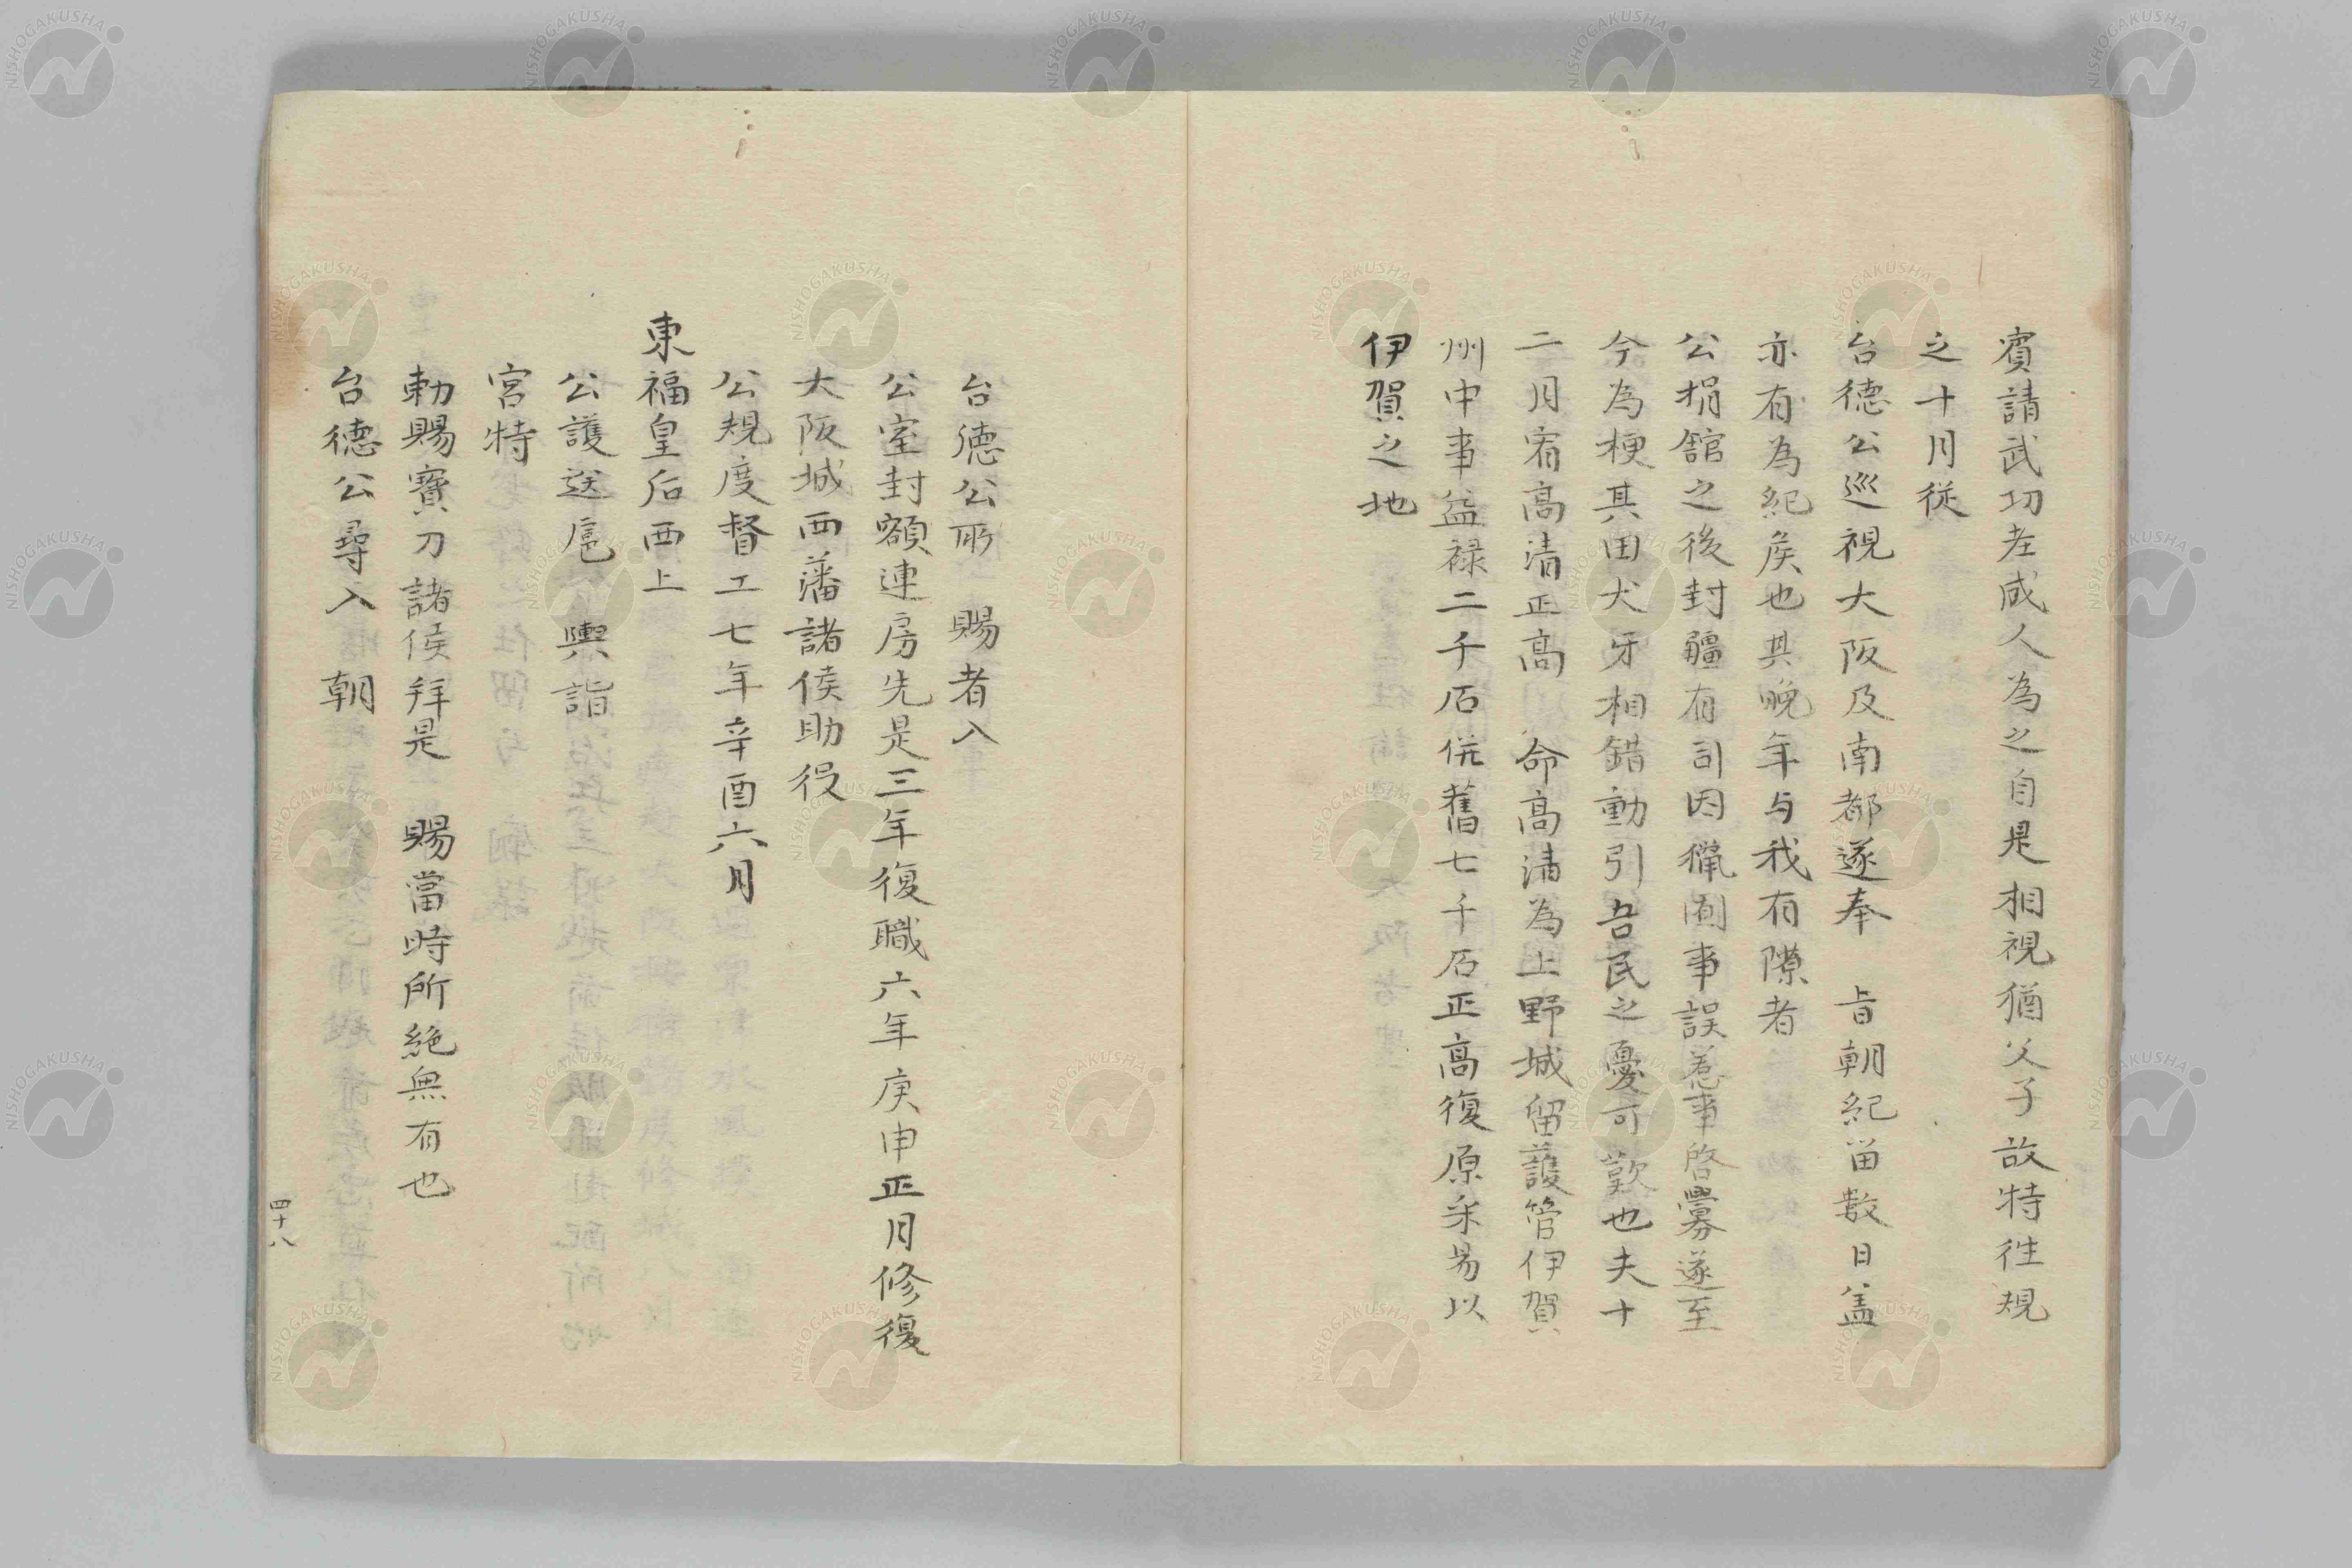 賓請武功老咸人為之自是相視猶父子故特往規
之十月従
台德公巡視大阪及南都遂奉　旨朝紀留数日盖
亦有為紀矦也其晚年与我有隙者
公捐舘之後封疆有司因獵圍事誤惹事啓釁遂至
今為梗其田犬牙相錯動引吾民之憂可歎也夫十
二月宥高清正高　命高清為上野城留護管伊賀
州中事益禄二千石併舊七千石正高復原采易以
伊賀之地
台德公所　賜者入
公室封額連房先是三年復職六年庚申正月修復
大阪城西藩諸侯助役
公規度督工七年辛酉六月
東福皇后西上
公護送扈　輿詣
宮特
勅賜寶刀諸侯拜是　賜當時所絶無有也
台德公尋入　朝
四十八
NISHOGAKUSHA